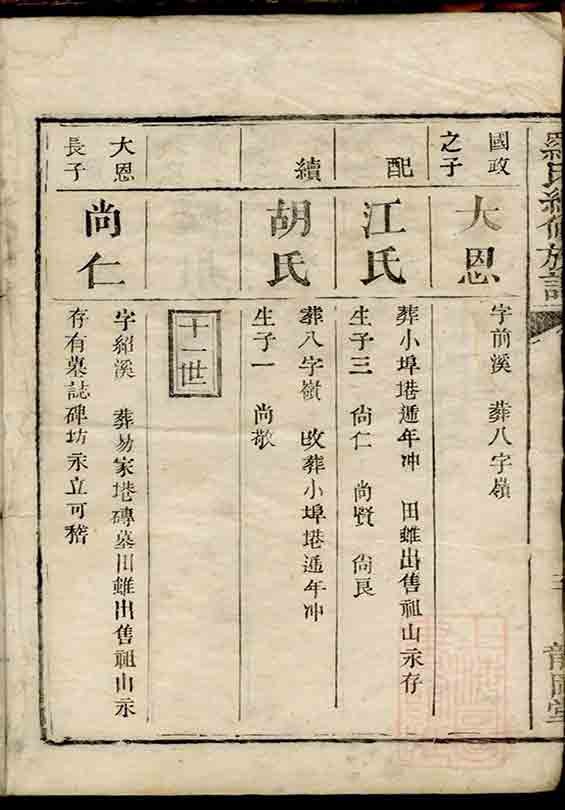 羅氏續修族譜
龍岡堂
國政
之子
大恩
字前溪 葬八字嶺
配
江氏
葬小埠塂遞年冲 田雖出售祖山永存
生子三 尙仁 尙賢 尙良
續
胡氏
葬八字嶺 改葬小埠塂遞年冲
生子一 尙敬
十一世
大恩
長子
尚仁
字紹溪 葬易家塂磚墓田雖出售祖山永
存有墓誌碑坊永立可稽